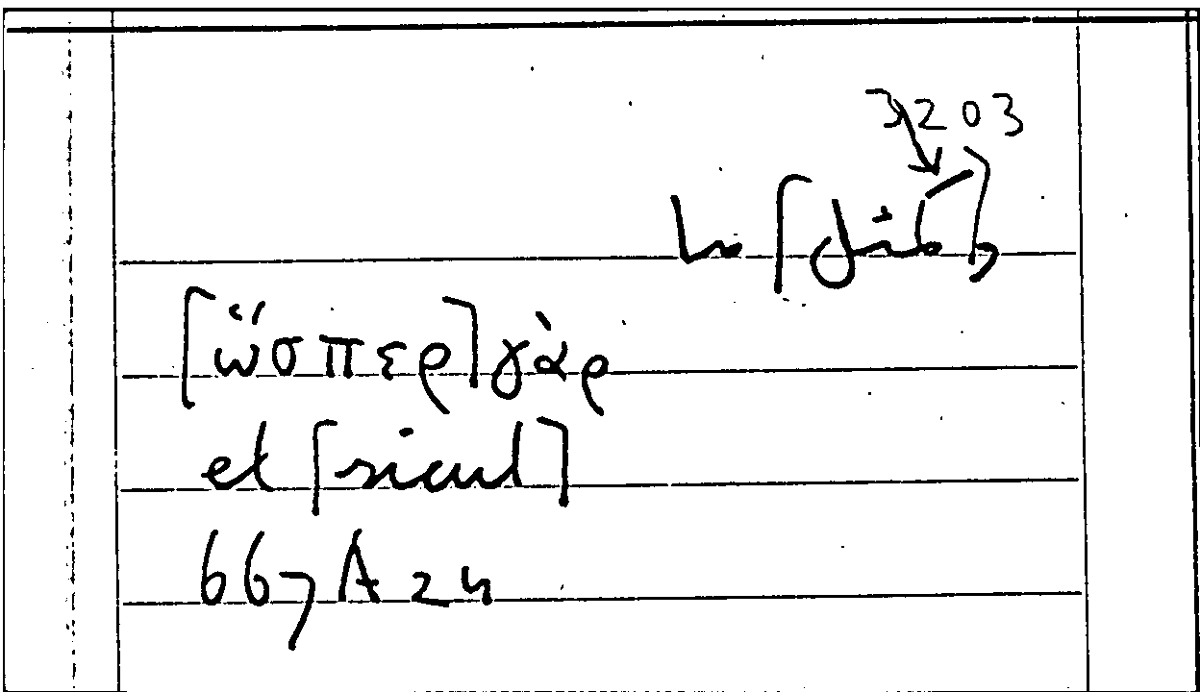 3203
[ὥσπερ] γὰρ
et [sicut]
667 A 24